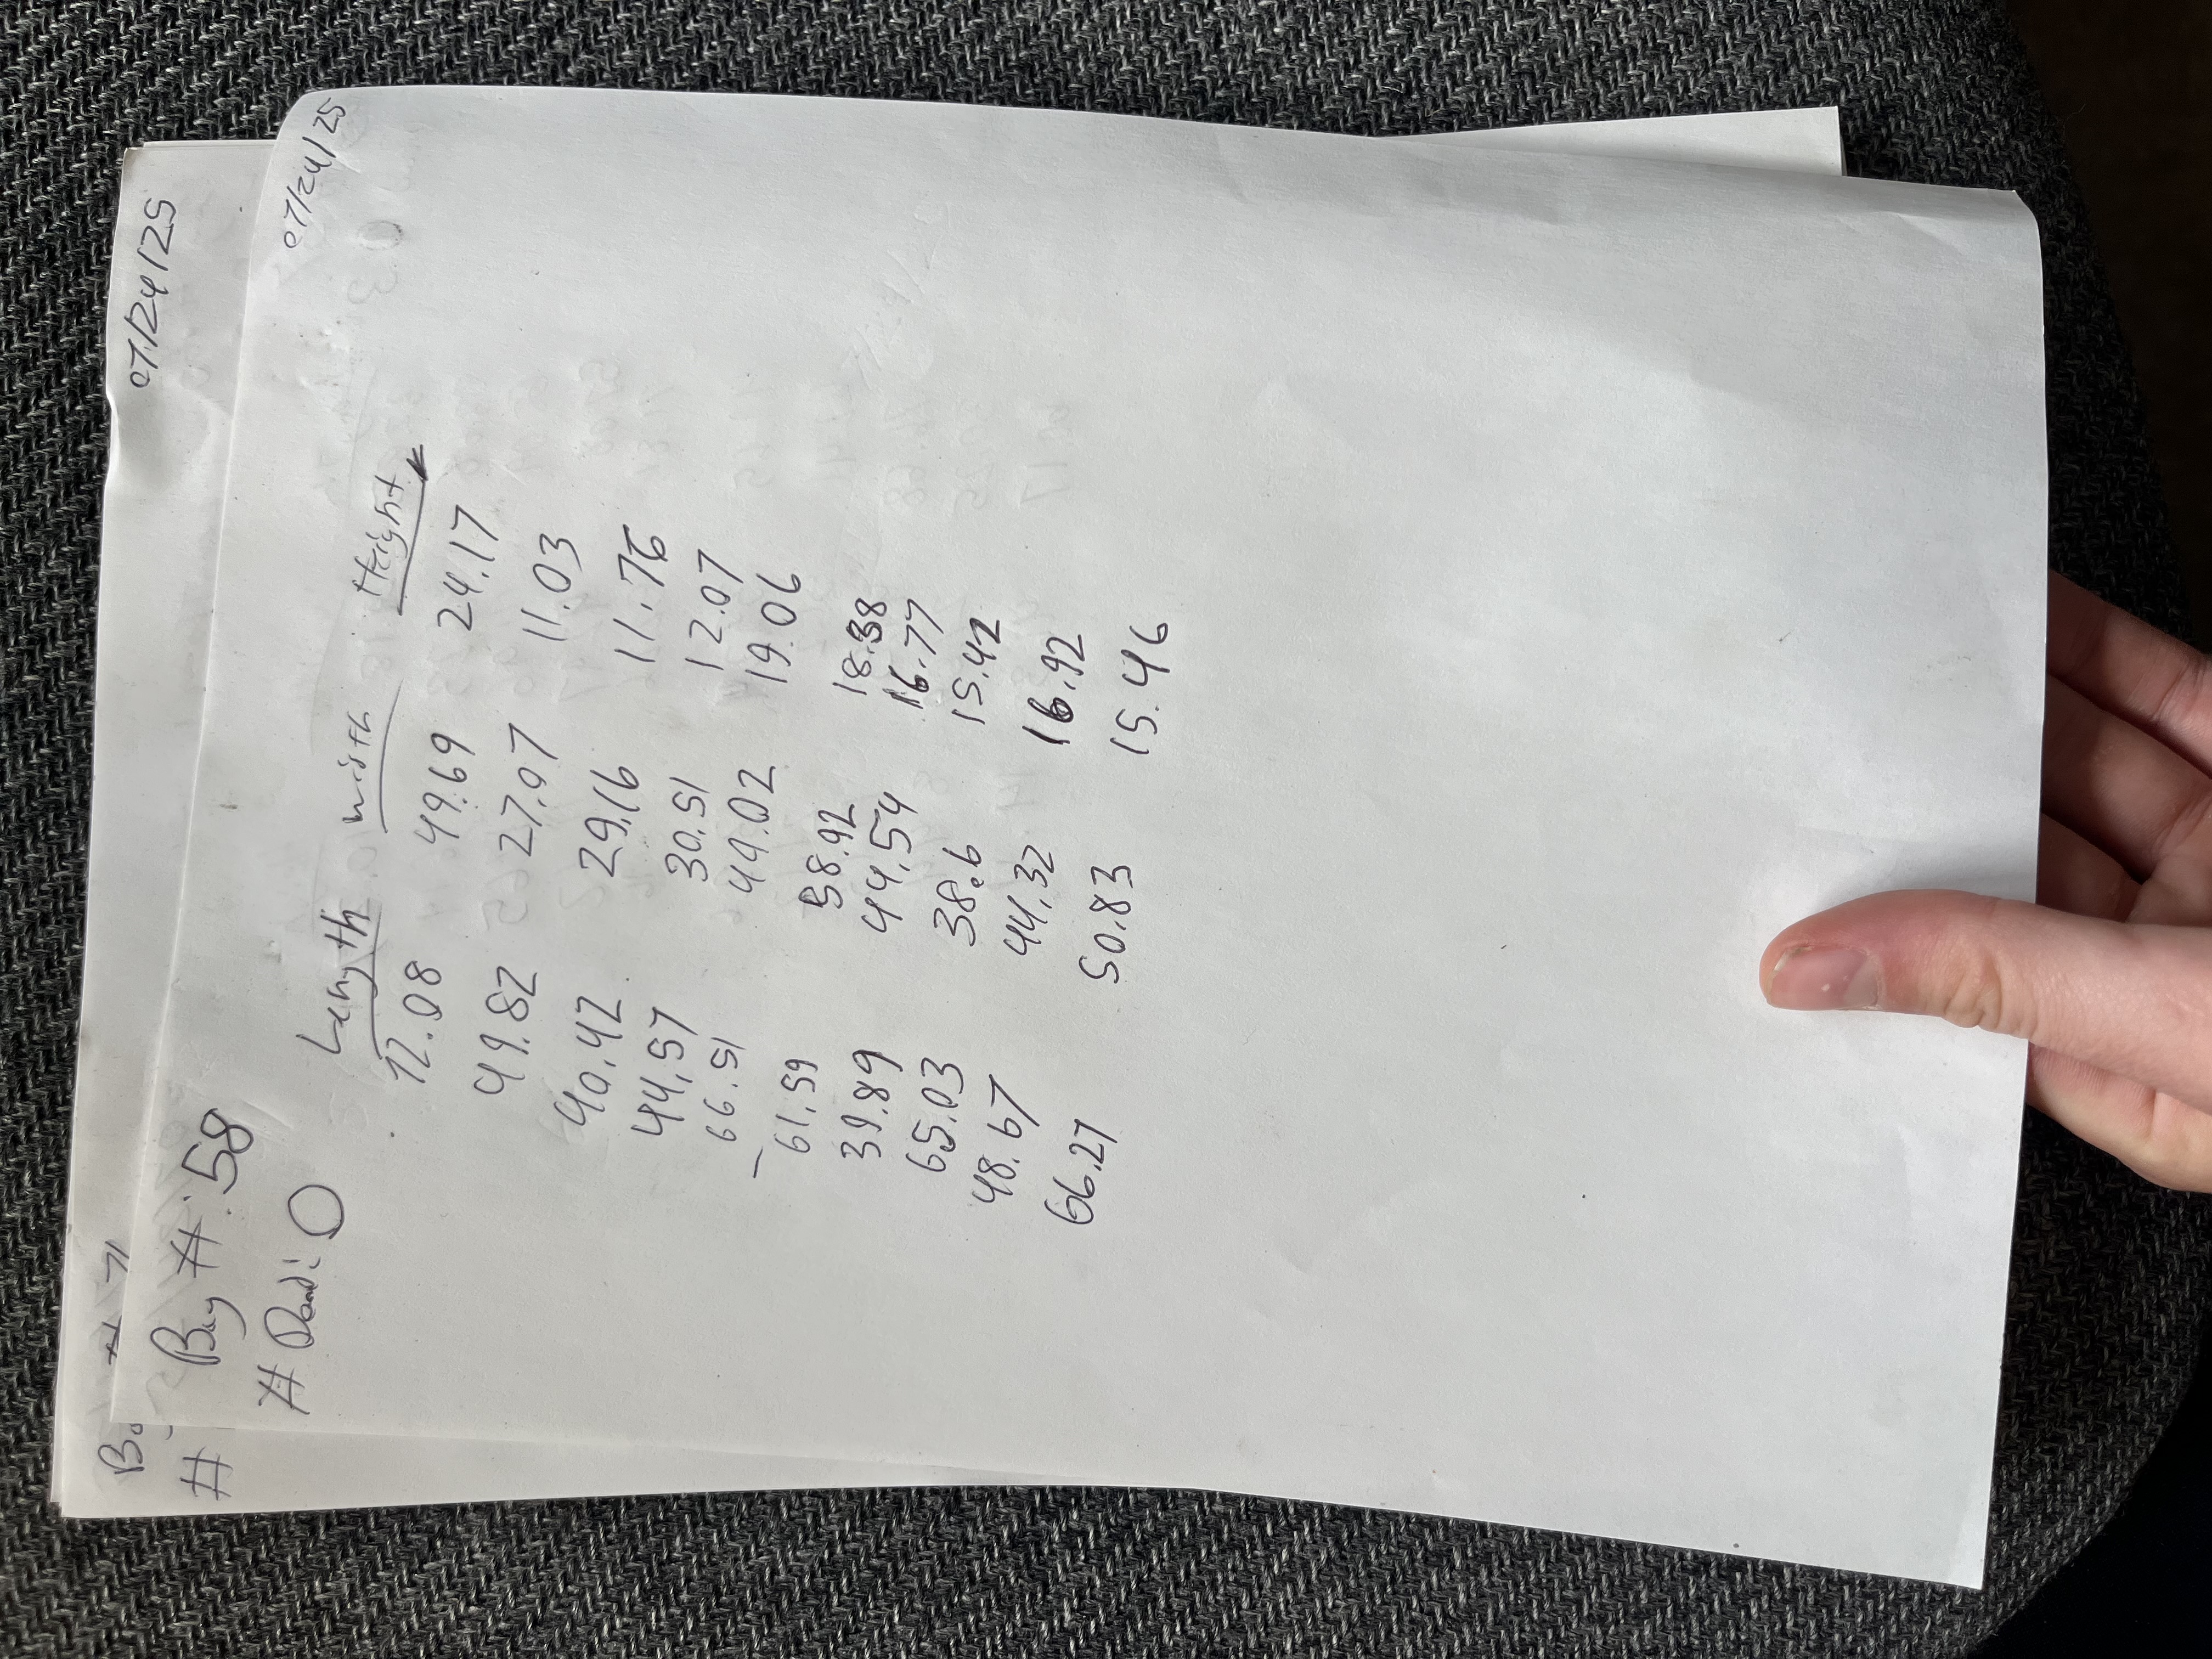 07/24/25
#
Bag #: 58
07/24/25
# Dead: 0
Length Width Height
12.08 49.69 24.17
49.82 27.07 11.03
40.42 29.16 11.76
44.57 30.51 12.07
66.51 49.02 19.06
61.59 38.92 18.38
39.89 44.54 16.77
65.03 38.6 15.42
48.67 44.32 16.92
66.27 50.83 15.46